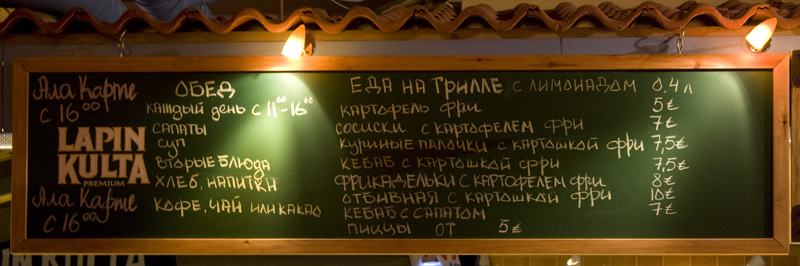 Ала Карте
С 16⁰⁰
LAPIN
KULTA
PREMIUM
Ала Карте
С 16⁰⁰
ОБЕД
КАЖДЫЙ ДЕНЬ С 11⁰⁰-16⁰⁰
САЛАТЫ
СУП
ВТОРЫЕ БЛЮДА
ХЛЕБ, НАПИТКИ
КОФЕ, ЧАЙ ИЛИ КАКАО
ЕДА НА ГРИЛЛЕ С ЛИМОНАДОМ 0,4 Л
КАРТОФЕЛЬ ФРИ 5€
СОСИСКИ С КАРТОФЕЛЕМ ФРИ 7€
КУРИНЫЕ ПАЛОЧКИ С КАРТОШКОЙ ФРИ 7,5€
КЕБАБ С КАРТОШКОЙ ФРИ 7,5€
ФРИКАДЕЛЬКИ С КАРТОФЕЛЕМ ФРИ 8€
ОТБИВНАЯ С КАРТОШКОЙ ФРИ 10€
КЕБАБ С САЛАТОМ 7€
ПИЦЦЫ ОТ 5€
KULTA